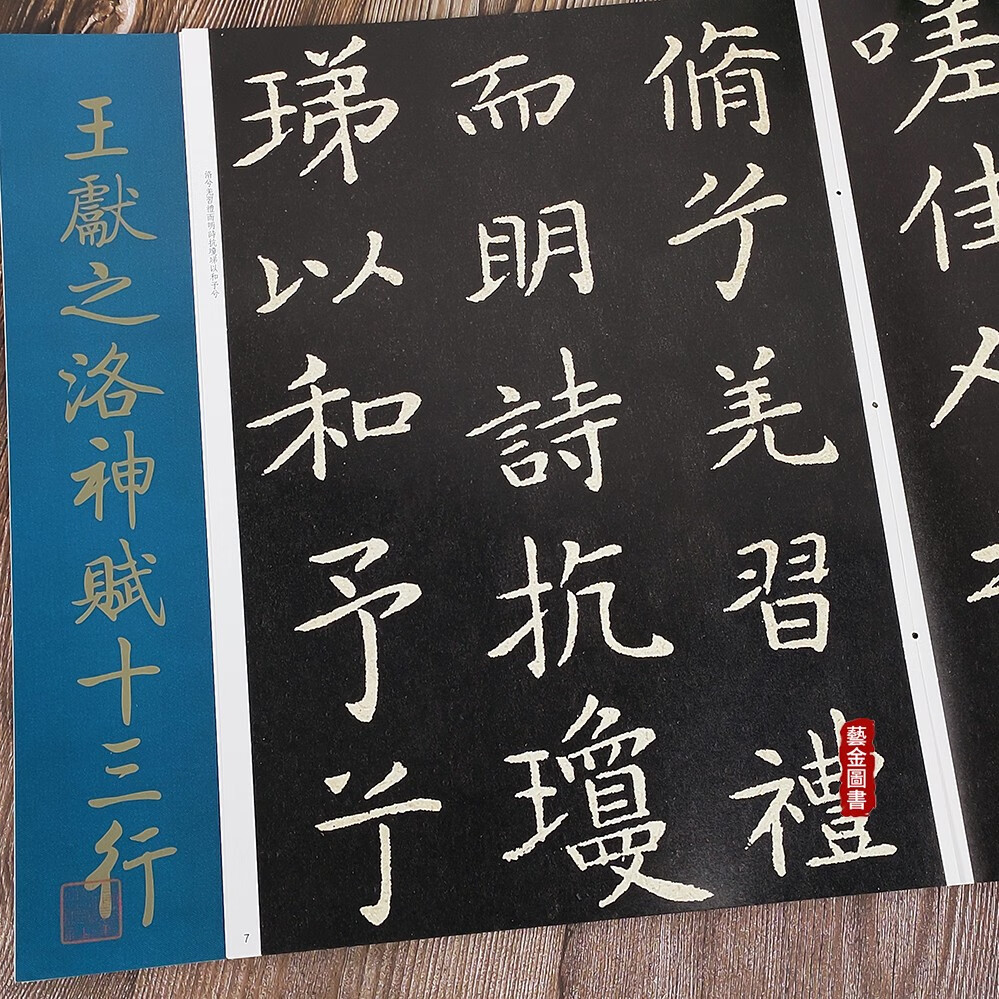 嗟佳人
脩兮羌習禮
而明詩抗瓊
珶以和予兮
脩兮羌習禮而明詩抗瓊珶以和予兮
7
王獻之洛神賦十三行
藝金圖書